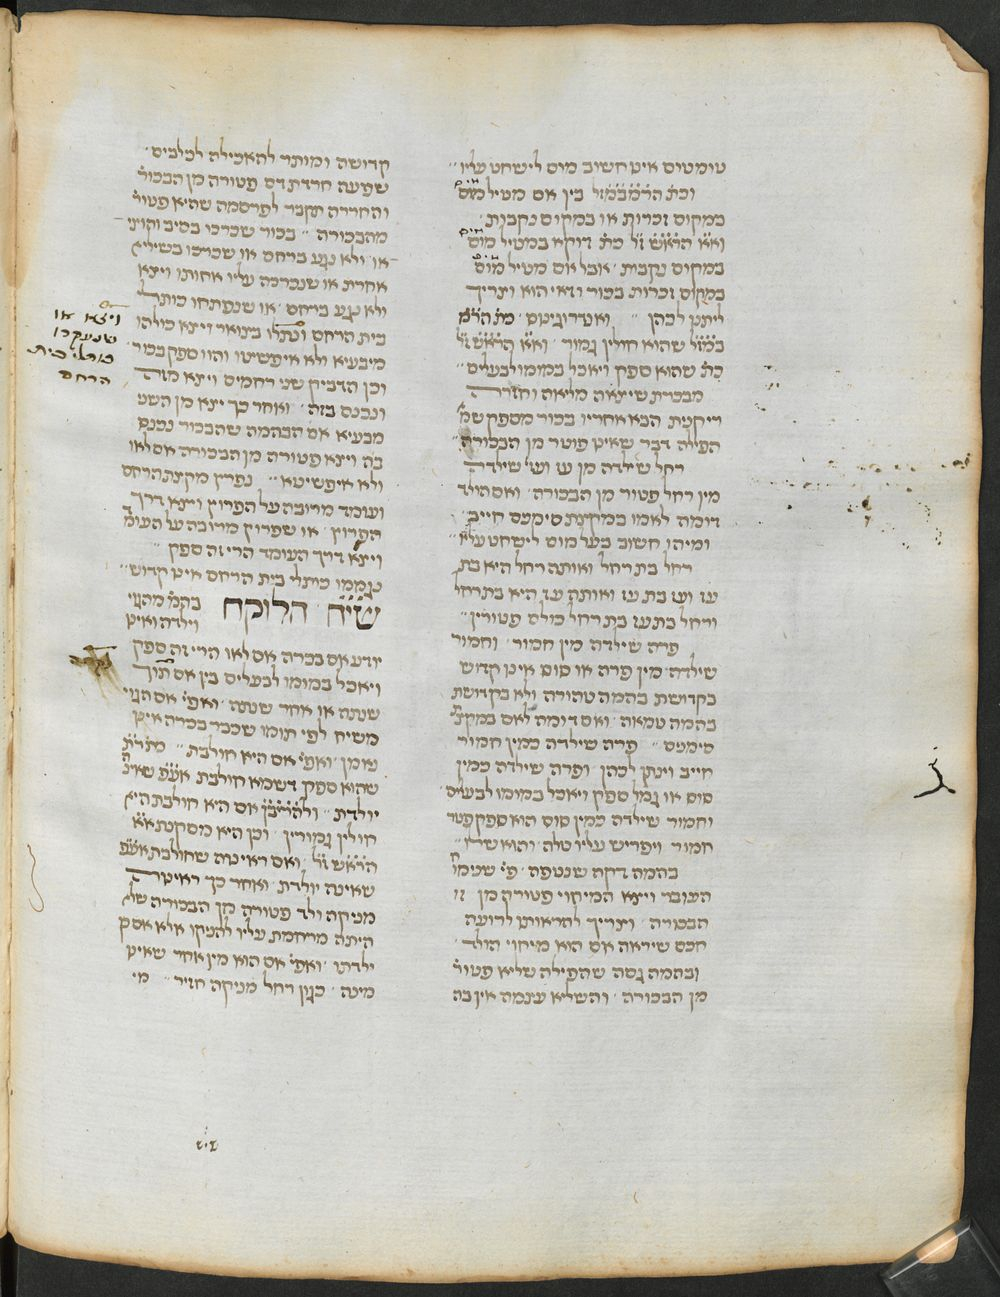 טומטום אינו חשוב מום לישחט עליו
וכת׳ הרמב״ם ז״ל בין אם מטיל מים
במקום זכרות או במקום נקבות
וא״א הרא״ש ז״ל כת׳ דוקא במטיל מים
במקום נקבות אבל אם מטיל מים
במקום זכרות בכור ודאי הוא וצריך
ליתנו לכהן ואנדרוגינוס כת׳ הרמ׳
במ״ז״ל שהוא חולין גמור וא״א הרא״ש ז״ל
כת׳ שהוא ספק ויאכל במומו לבעלים
מבכרת שיצאה מליאה וחזרה
ריקנית הבא אחריו בכור מספק שמ׳
הפילה דבר שאינו פוטר מן הבכורה
רחל שילדה מן עז ועז שילדה
מין רחל פטור מן הבכורה ואם הולד
דומה לאמו במקצת סימנים חייב
ומיהו חשוב בעל מום לישחט עליו
רחל בת רחל ואותה רחל היא בת
עז ועז בת עז ואותה עז היא בת רחל
ורחל בת עז בת רחל כולם פטורין
פרה שילדה מין חמור וחמור
שילדה מין פרה או סוס אינו קדוש
בקדושת בהמה טהורה ולא בקדושת
בהמה טמאה ואם דומה לאם במקצ׳
סימנים פרה שילדה כמין חמור
חייב וינתן לכהן ופרה שילדה כמין
סוס או גמל ספק ויאכל במומו לבעלים
וחמור שילדה כמין סוס הוא ספק פטר
חמור ויפריש עליו טלה והוא שלו
בהמה דקה שנטפה פי׳ שנימוח
העובר ויצא המיחוי פטורה מן
הבכורה וצריך להראותו לרועה
חכם שיראה אם הוא מיחוי הולד
ובהמה גסה שהפילה שליא פטור׳
מן הבכורה והשליא עצמה אין בה
קדושה ומותר להאכילה לכלבים
שפעה חררת דם פטורה מן הבכור׳
והחררה תקבר לפרסמה שהיא פטור׳
מהבכורה בכור שכרכו בסיב והוציאו
ולא נגע ברחם או שכרכו בשילית
אחרת או שנכרכה עליו אחותו ויצא
ולא נגע ברחם או שנפתחו כותלי
בית הרחם ונתלו בצואר ויצא כולהו
מיבעיא ולא איפשיטו והוו ספק בכור
וכן הדביק שני רחמים ויצא מזה
ונכנס בזה ואחר כך יצא מן השני
מבעיא אם הבהמה שהבכור נכנס
בה ויצא פטורה מן הבכורה אם לאו
ולא איפשיטא נפרץ מקצת הרחם
ועומד מרובה על הפרוץ ויצא דרך
הפרוץ או שפרוץ מרובה על העומד
ויצא דרך העומד הרי זה ספק
נגממו כותלי בית הרחם אינו קדוש
שי״ח הלוקח בהמ׳ מהגוי
וילדה ואינו
יודע אם בכרה אם לאו הרי זה ספק
ויאכל במומו לבעלים בין אם תוך
שנתה או אחר שנתה ואפי׳ אם הגוי
משיח לפי תומו שכבר בכרה אינו
נאמן ואפי׳ אם היא חולבת
שהוא ספק דשמא חולבת אע״פ שאינה
יולדת אם היא חולבת היא
חולין גמורין וכן היא מסקנת א״א
הרא״ש ז״ל ואם ראינוה שחולבת אע״פ
שאינה יולדת ואחר כך ראינוה
מניקה ולד פטורה מן הבכורה שלא
היתה מרחמת עליו להניקו אלא אם כן
ילדתו ואפי׳ אם הוא מין אחר שאינו
מינה כגון רחל מניקה חזיר מי
ויצא או
שנעקרו
כותלי בית
הרחם